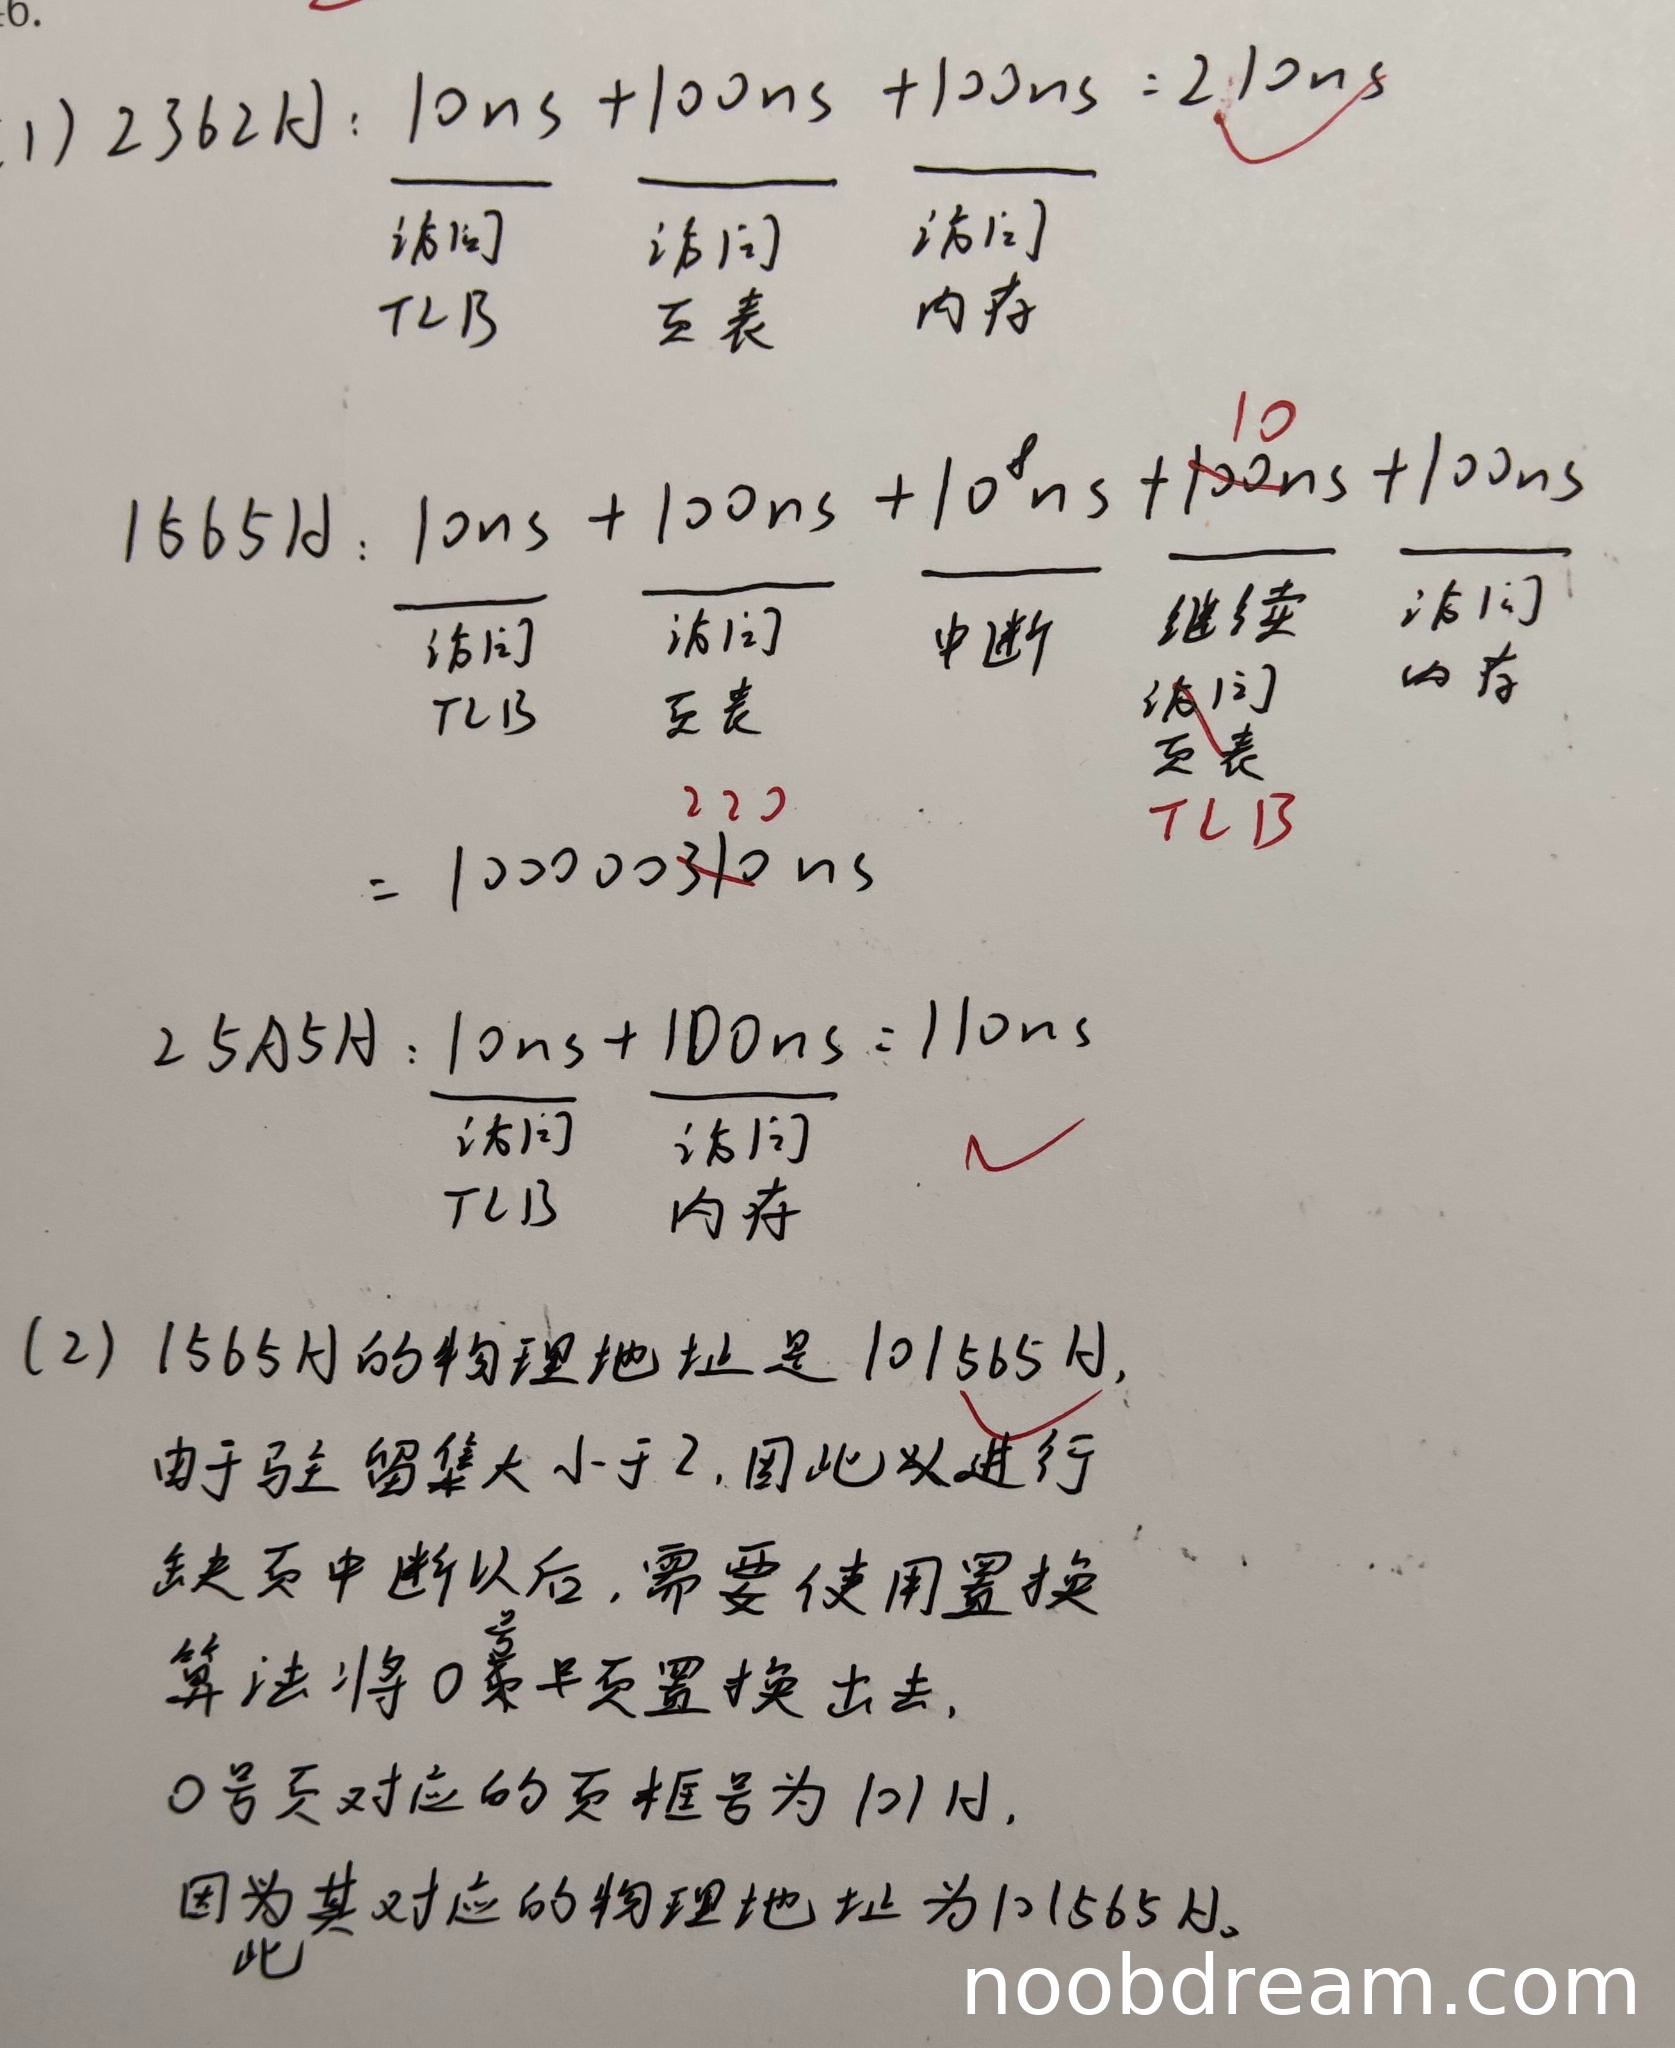 46.
(1) 2362H: 10ns + 100ns + 100ns = 210ns
访问 访问 访问
TLB 页表 内存
10
1565H: 10ns + 100ns + 10⁸ns + 100ns + 100ns
访问 访问 中断 继续 访问
TLB 页表 访问 内存
页表
TLB
220
= 100000310ns
25A5H: 10ns + 100ns = 110ns
访问 访问
TLB 内存
(2) 1565H的物理地址是101565H,
由于驻留集大小于2,因此以进行
缺页中断以后,需要使用置换
号
算法将0页置换出去,
0号页对应的页框号为101H,
因为其对应的物理地址为101565H。
此
noobdream.com